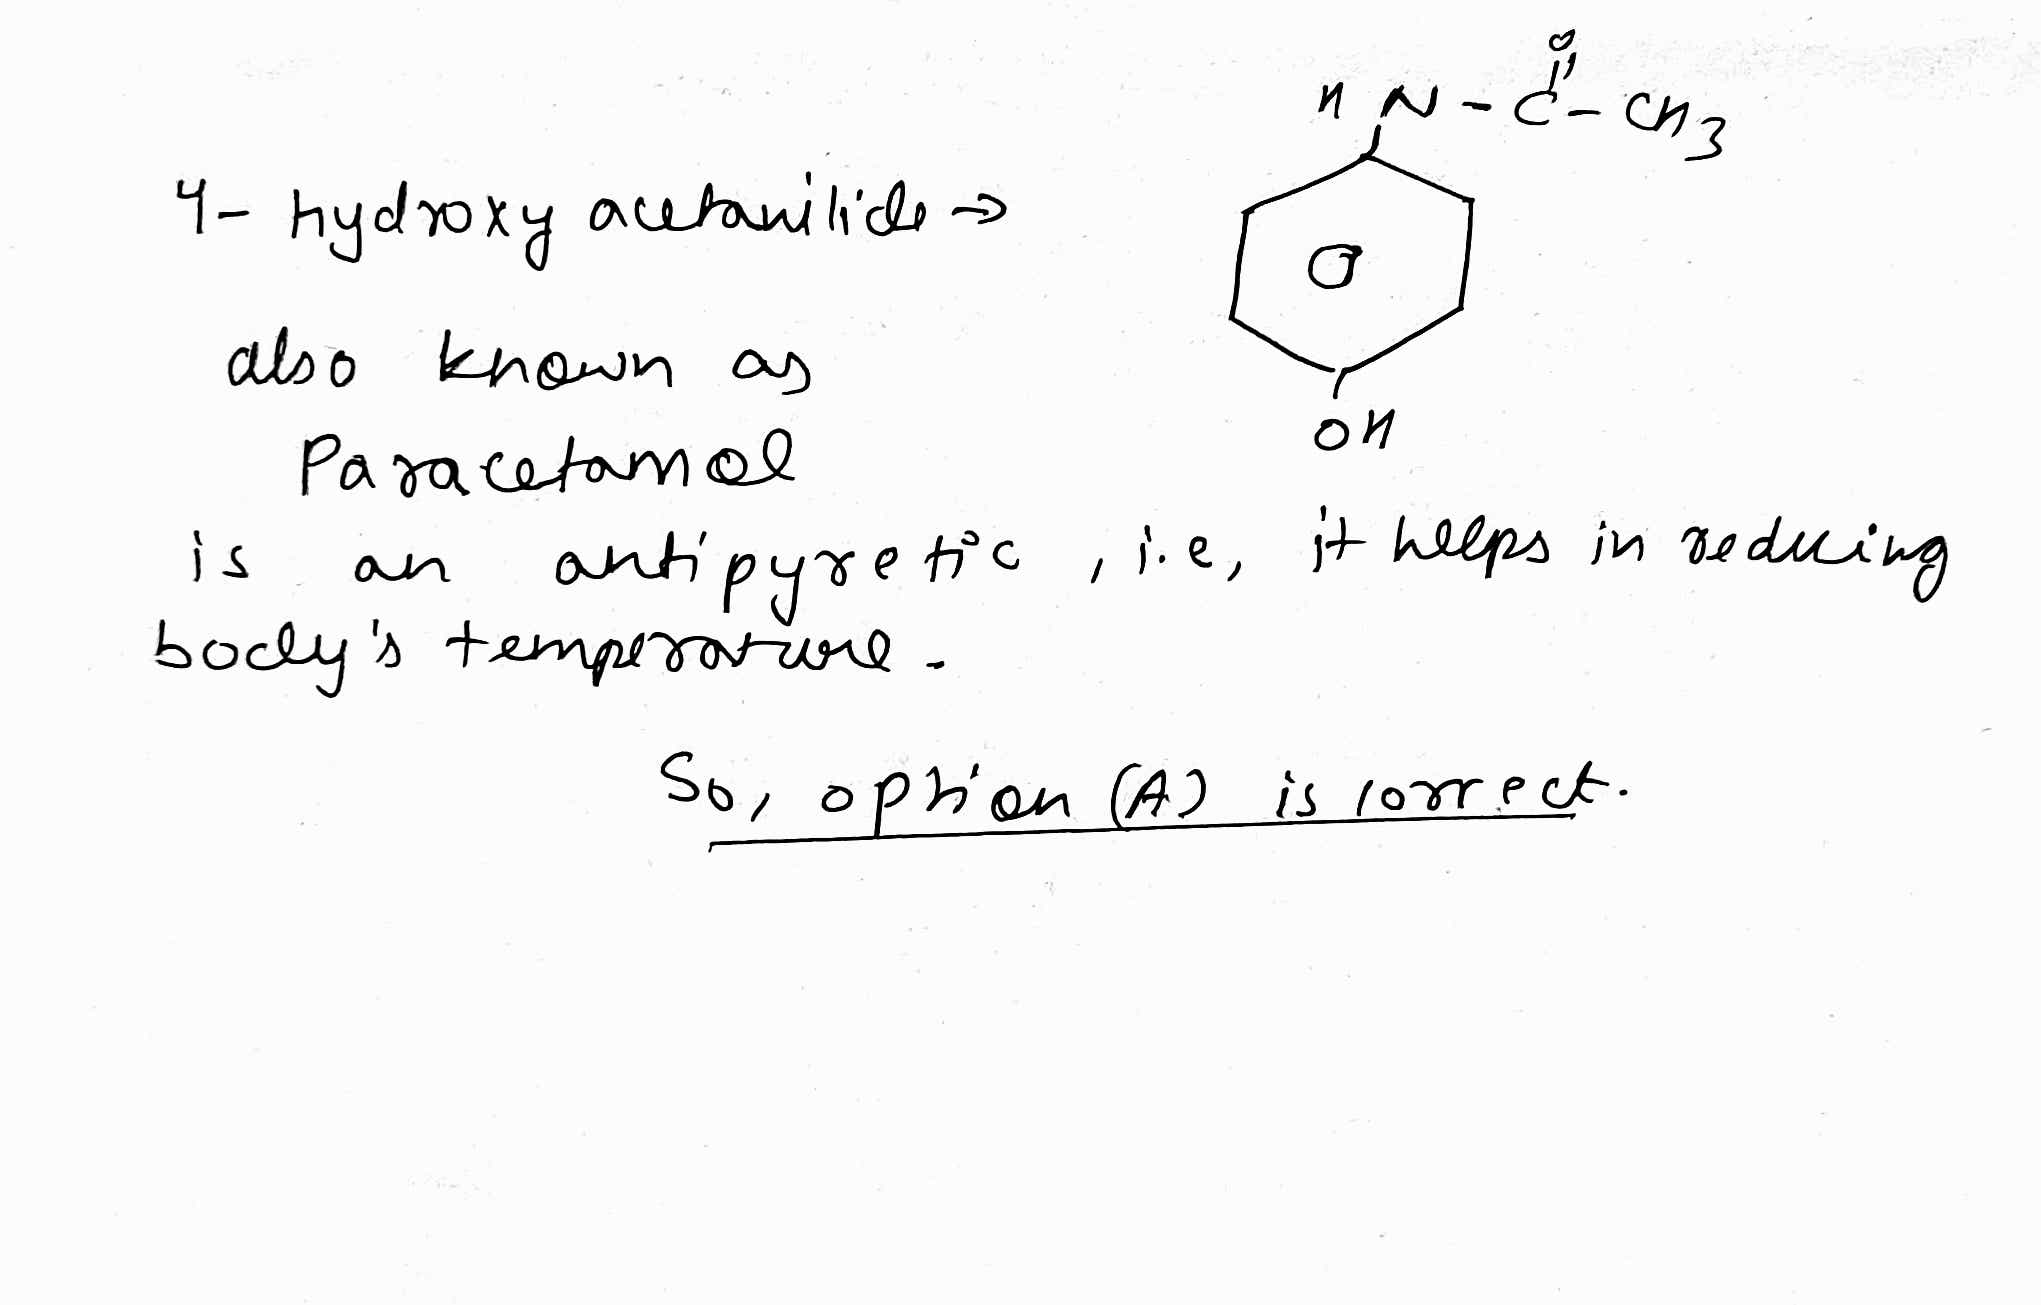 HN-C-CH3
O
4- hydroxy acetanilide →
also known as
OH
Paracetamol
is an antipyretic, i.e, it helps in reducing
body's temperature.
So, option (A) is correct.